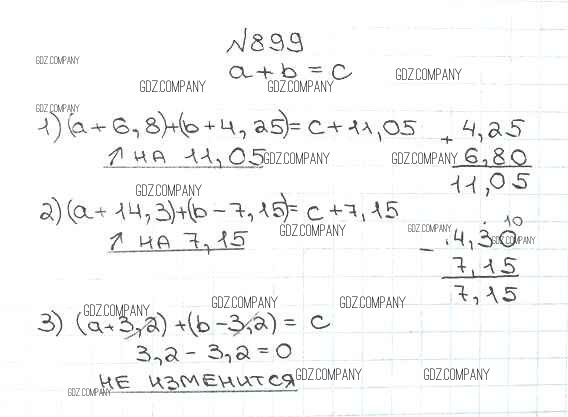 №899
GDZ.COMPANY
a + b = c
GDZ.COMPANY
GDZ.COMPANY GDZ.COMPANY
GDZ.COMPANY
1) (a + 6,8)+(b + 4,25)= c + 11,05
+ 4,25
6,80
11,05
↑ НА 11,05
GDZ.COMPANY GDZ.COMPANY
GDZ.COMPANY
2) (a + 14,3)+(b - 7,15)= c + 7,15
↑ НА 7,15
GDZ.COMPANY GDZ.COMPANY
10
- 14,30
GDZ.COMPANY
7,15
7,15
GDZ.COMPANY GDZ.COMPANY GDZ.COMPANY
3) (a + 3,2) + (b - 3,2) = c
3,2 - 3,2 = 0
НЕ ИЗМЕНИТСЯ
GDZ.COMPANY GDZ.COMPANY
GDZ.COMPANY